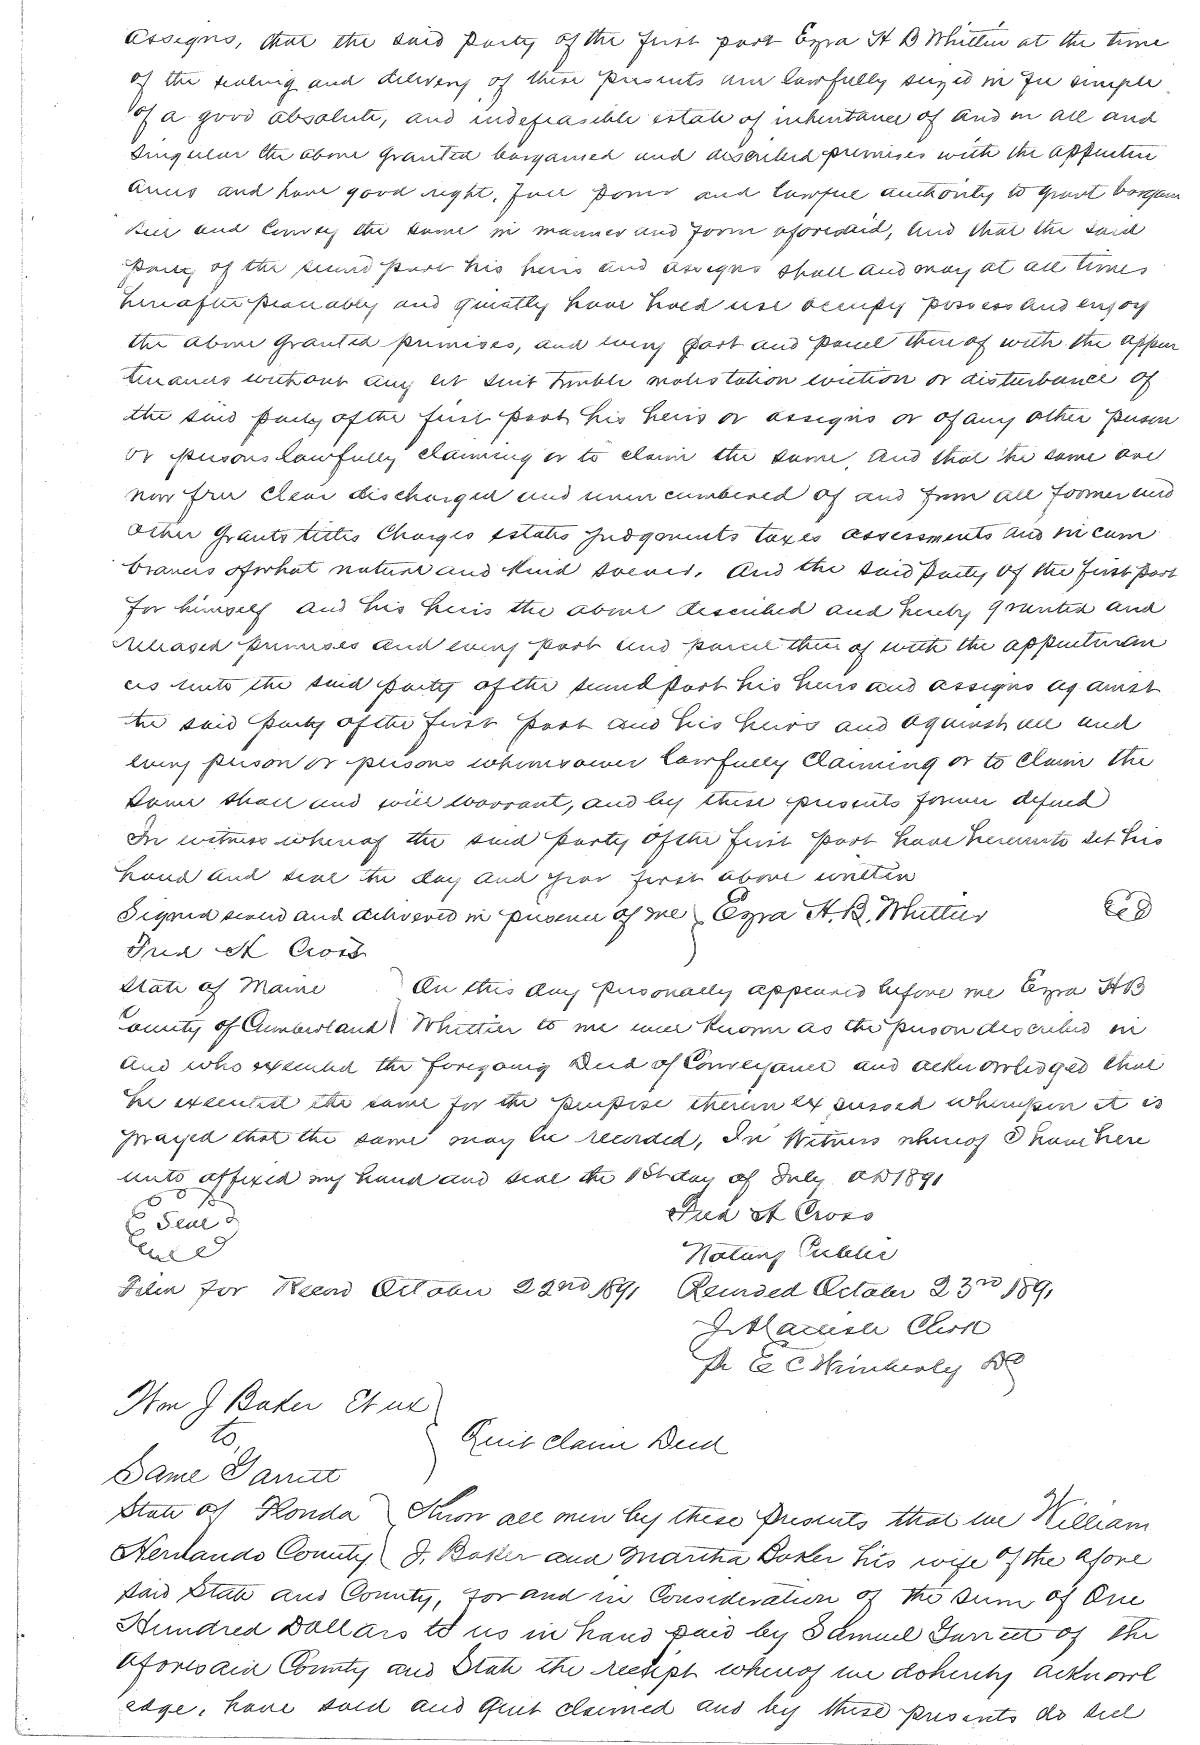 assigns, that the said party of the first part Ezra H B Whittier at the time
of the sealing and delivery of these presents are lawfully seized in fee simple
of a good absolute, and indefeasible estate of inheritance of and in all and
singular the above granted bargained and described premises with the appurten
ances and have good right, full power and lawful authority to grant bargain
sell and convey the same in manner and form aforesaid, and that the said
party of the second part his heirs and assigns shall and may at all times
hereafter peaceably and quietly have hold use occupy possess and enjoy
the above granted premises, and every part and parcel thereof with the appur
tenances without any let suit trouble molestation eviction or disturbance of
the said party of the first part his heirs or assigns or of any other person
or persons lawfully claiming or to claim the same, and that the same are
now free clear discharged and unincumbered of and from all former and
other grants titles charges estates judgments taxes assessments and incum
brances of what nature and kind soever. And the said party of the first part
for himself and his heirs the above described and hereby granted and
released premises and every part and parcel thereof with the appurtenan
ces unto the said party of the second part his heirs and assigns against
the said party of the first part and his heirs and against all and
every person or persons whomsoever lawfully claiming or to claim the
same shall and will warrant, and by these presents forever defend
In witness whereof the said party of the first part have hereunto set his
hand and seal the day and year first above written
Signed sealed and delivered in presence of me } Ezra H. B. Whittier
Fred H Cross
State of Maine } On this day personally appeared before me Ezra H B
County of Cumberland } Whittier to me well known as the person described in
and who executed the foregoing Deed of Conveyance and acknowledged that
he executed the same for the purpose therein expressed whereupon it is
prayed that the same may be recorded, In Witness whereof I have here
unto affixed my hand and seal the 1st day of July AD 1891
Seal Fred H Cross
Notary Public
Filed for Record October 22nd 1891 Recorded October 23rd 1891
Clerk
Pr E C Wimberly DC
Wm J Baker Et ux }
to } Quit claim Deed
Same Garrett
State of Florida } Know all men by these Presents that we William
Hernando County } J. Baker and Martha Baker his wife of the afore
said State and County, for and in Consideration of the sum of One
Hundred Dollars to us in hand paid by Samuel Garrett of the
aforesaid County and State the receipt whereof we do hereby acknowl
edge, have sold and Quit claimed and by these presents do sell